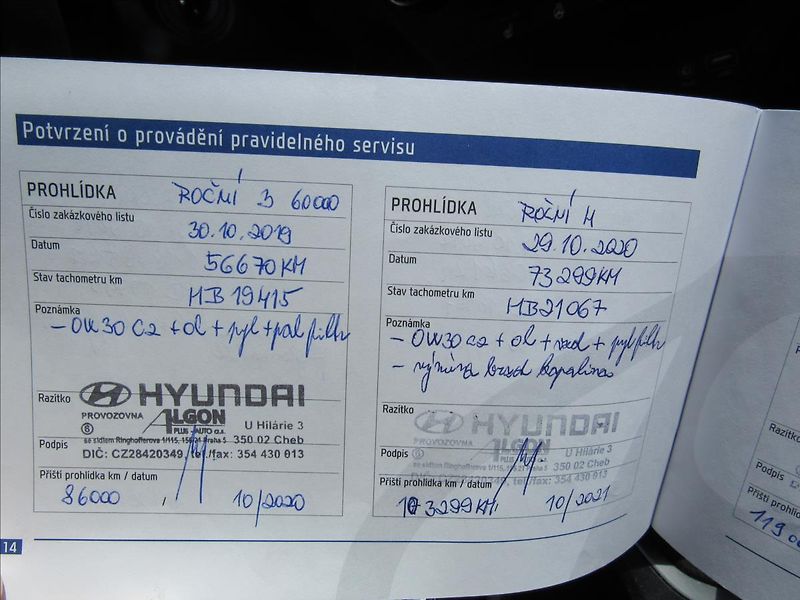 Potvrzení o provádění pravidelného servisu
PROHLÍDKA ROČNÍ B 60000
Číslo zakázkového listu
30.10.2019
Datum
56670KM
Stav tachometru km
HB19415
Poznámka
- 0W30 C2 + ol + pyl + pal filtr
Razítko
HYUNDAI
PROVOZOVNA
6
ALGON
PLUS - AUTO a.s.
U Hilárie 3
se sídlem Ringhofferova 1/115, 155 21 Praha 5
350 02 Cheb
Podpis
DIČ: CZ28420349, tel./fax: 354 430 913
Příští prohlídka km / datum
86000 / 10/2020
PROHLÍDKA ROČNÍ H
Číslo zakázkového listu
29.10.2020
Datum
73299KM
Stav tachometru km
HB21067
Poznámka
- 0W30 C2 + ol + vzd + pyl filtr
- výměna brzd kapalina
Razítko
HYUNDAI
PROVOZOVNA
6
ALGON
PLUS - AUTO a.s.
U Hilárie 3
se sídlem Ringhofferova 1/115, 155 21 Praha 5
350 02 Cheb
Podpis
DIČ: CZ28420349, tel./fax: 354 430 913
Příští prohlídka km / datum
103299KM 10/2021
14
Podpis
Příští prohlíd